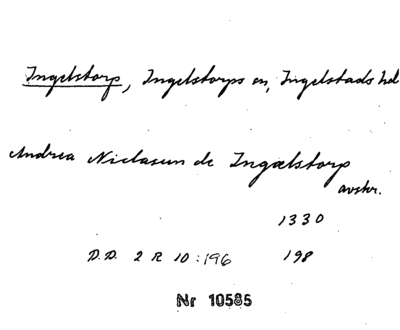 Ingelstorp, Ingelstorps sn, Ingelstads hd
Andrea Niclasun de Ingælstorp
avskr.
1330
D.D. 2 R 10:196 198
Nr 10585